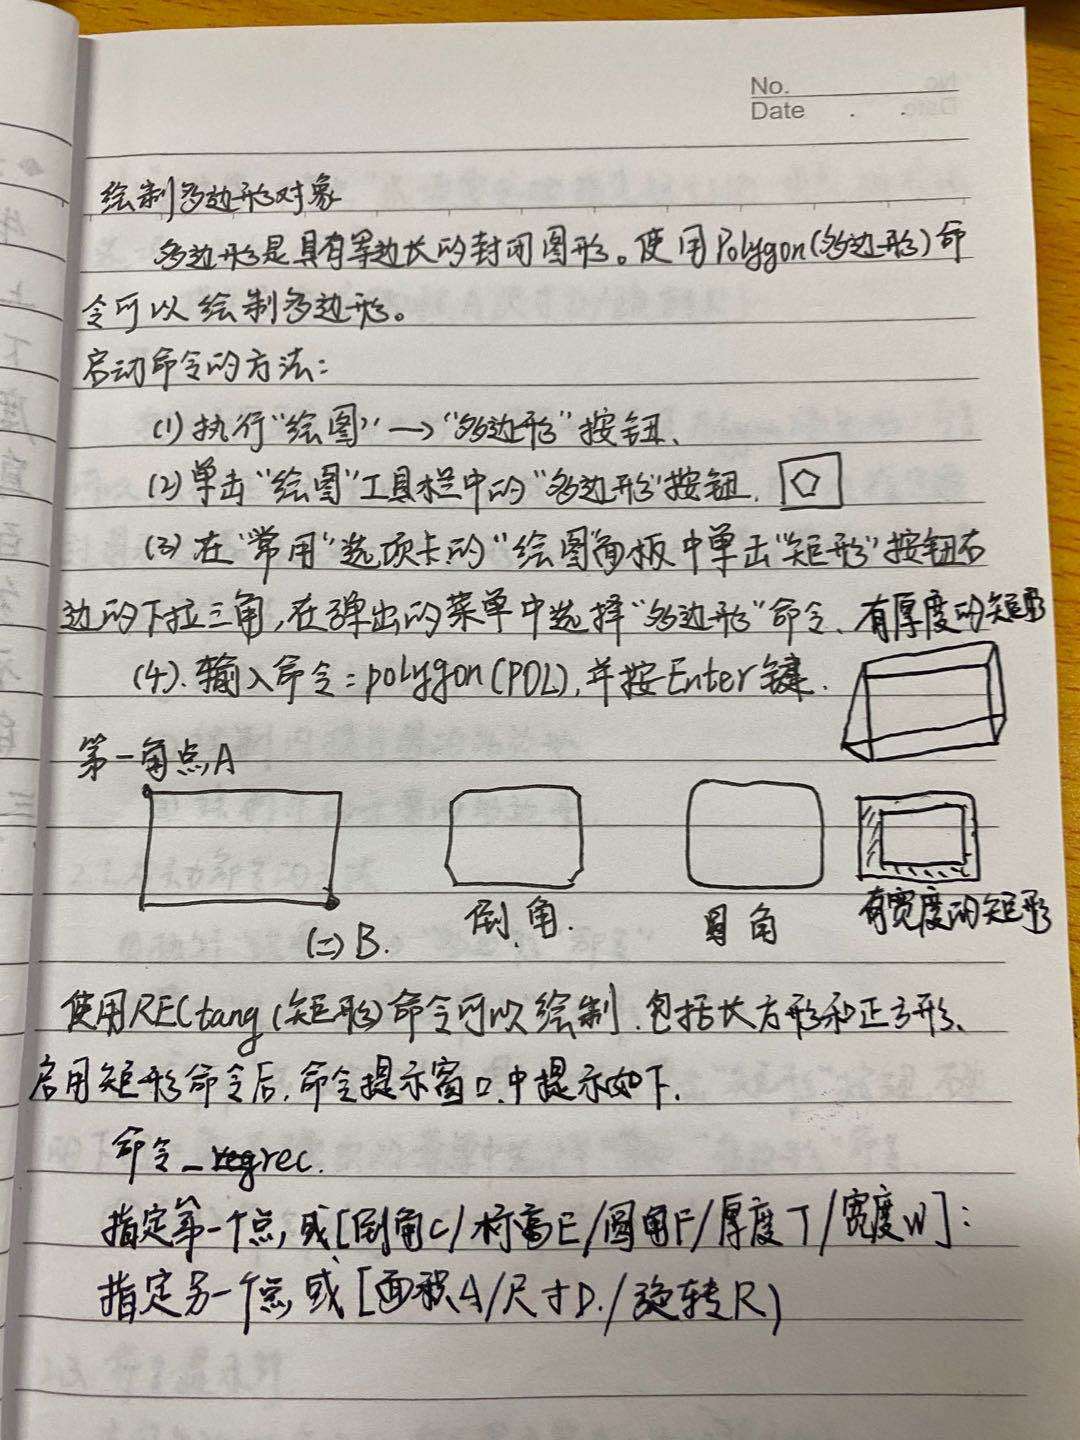 No.
Date
绘制多边形对象
多边形是具有等边长的封闭图形。使用Polygon(多边形)命
令可以绘制多边形。
启动命令的方法:
(1)执行“绘图”→“多边形”按钮.
(2)单击“绘图”工具栏中的“多边形”按钮.
(3)在“常用”选项卡的“绘图”面板中单击“矩形”按钮右
边的下拉三角,在弹出的菜单中选择“多边形”命令.
有厚度的矩形
(4).输入命令:polygon(POL),并按Enter键.
第一角点A
(二)B.
倒角.
圆角
有宽度的矩形
使用RECtang(矩形)命令可以绘制.包括长方形和正方形.
启用矩形命令后,命令提示窗口.中提示如下.
命令_rec.
指定第一个点,或[倒角C/标高E/圆角F/厚度T/宽度W]:
指定另一个点,或[面积A/尺寸D./旋转R)